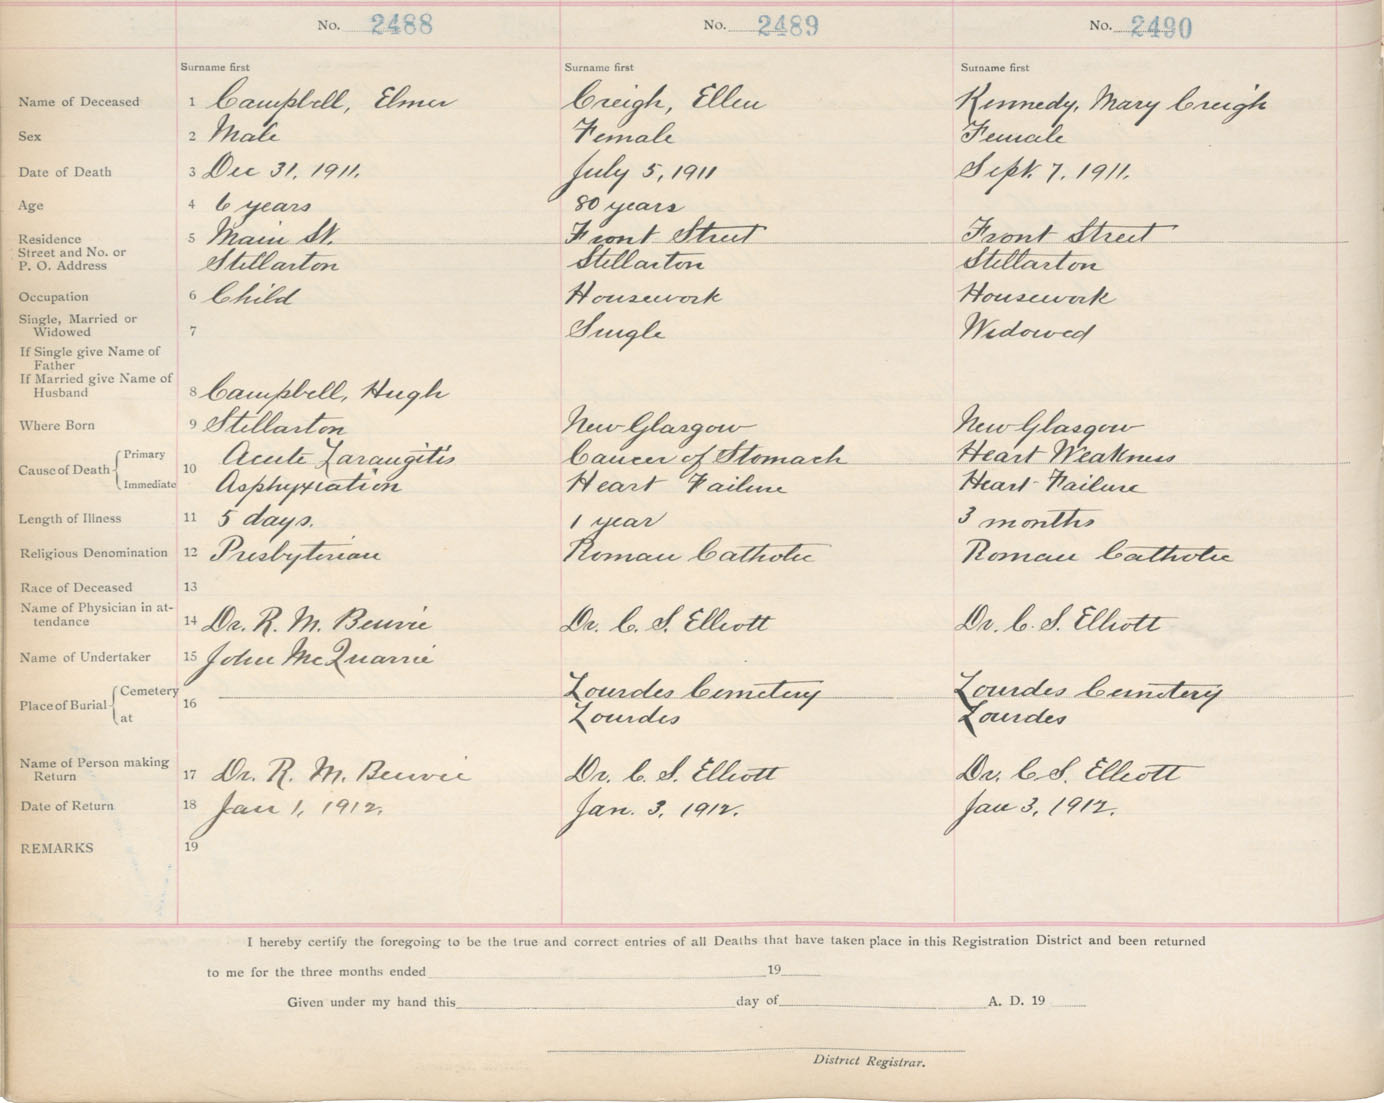 No. 2488 No. 2489 No. 2490
Surname first Surname first Surname first
Name of Deceased 1 Campbell, Elmer Creigh, Ellen Kennedy, Mary Creigh
Sex 2 Male Female Female
Date of Death 3 Dec 31, 1911. July 5, 1911 Sept. 7, 1911.
Age 4 6 years 80 years
Residence 5 Main St. Front Street Front Street
Street and No. or
P. O. Address Stellarton Stellarton Stellarton
Occupation 6 Child Housework Housework
Single, Married or
Widowed 7 Single Widowed
If Single give Name of
Father
If Married give Name of
Husband 8 Campbell, Hugh
Where Born 9 Stellarton New Glasgow New Glasgow
Cause of Death Primary 10 Acute Laraugitis Cancer of Stomach Heart Weakness
Immediate Asphyxiation Heart Failure Heart Failure
Length of Illness 11 5 days. 1 year 3 months
Religious Denomination 12 Presbyterian Roman Catholic Roman Catholic
Race of Deceased 13
Name of Physician in at-
tendance 14 Dr. R. M. Benvie Dr. C. S. Elliott Dr. C. S. Elliott
Name of Undertaker 15 John McQuarrie
Place of Burial Cemetery 16 Lourdes Cemetery Lourdes Cemetery
at Lourdes Lourdes
Name of Person making
Return 17 Dr. R. M. Benvie Dr. C. S. Elliott Dr. C. S. Elliott
Date of Return 18 Jan 1, 1912. Jan. 3, 1912. Jan 3, 1912.
REMARKS 19
I hereby certify the foregoing to be the true and correct entries of all Deaths that have taken place in this Registration District and been returned
to me for the three months ended 19
Given under my hand this day of A. D. 19
District Registrar.